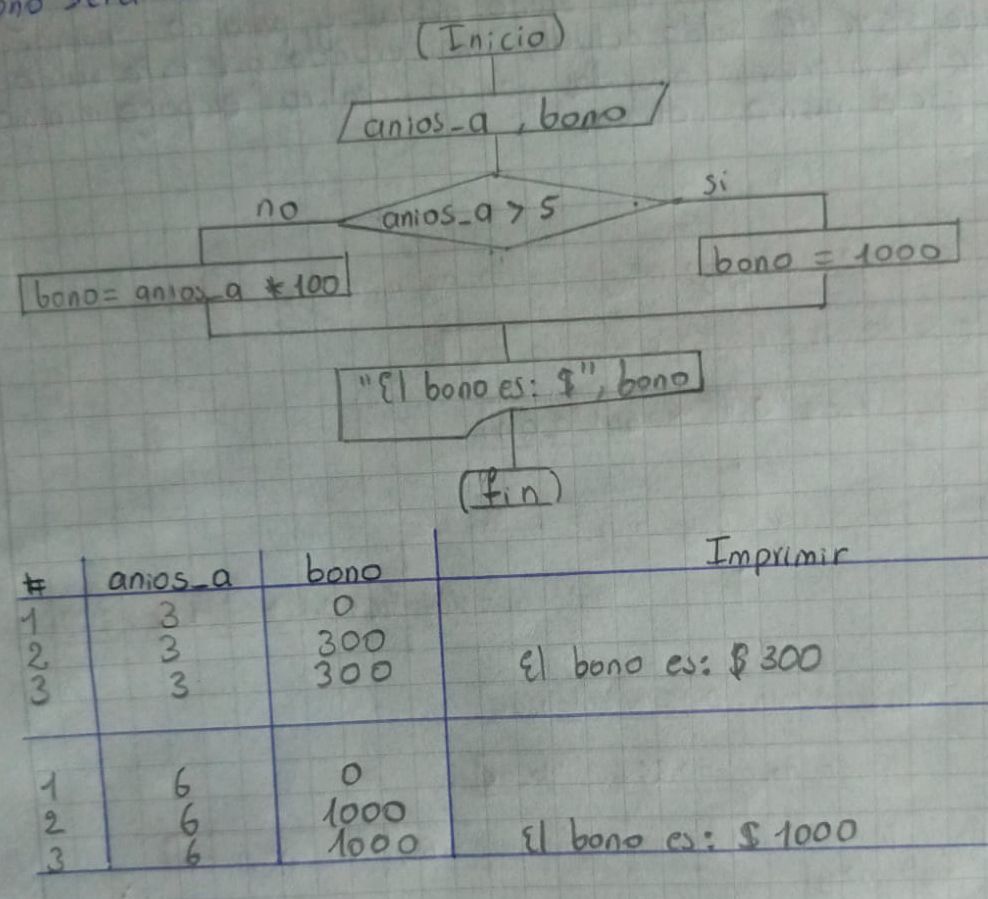 (Inicio)
anios_a , bono
no
anios_a > 5
si
bono = anios_a * 100
bono = 1000
"El bono es: $", bono
(fin)
# anios_a bono Imprimir
1 3 0
2 3 300
3 3 300 El bono es: $ 300
1 6 0
2 6 1000
3 6 1000 El bono es: $ 1000